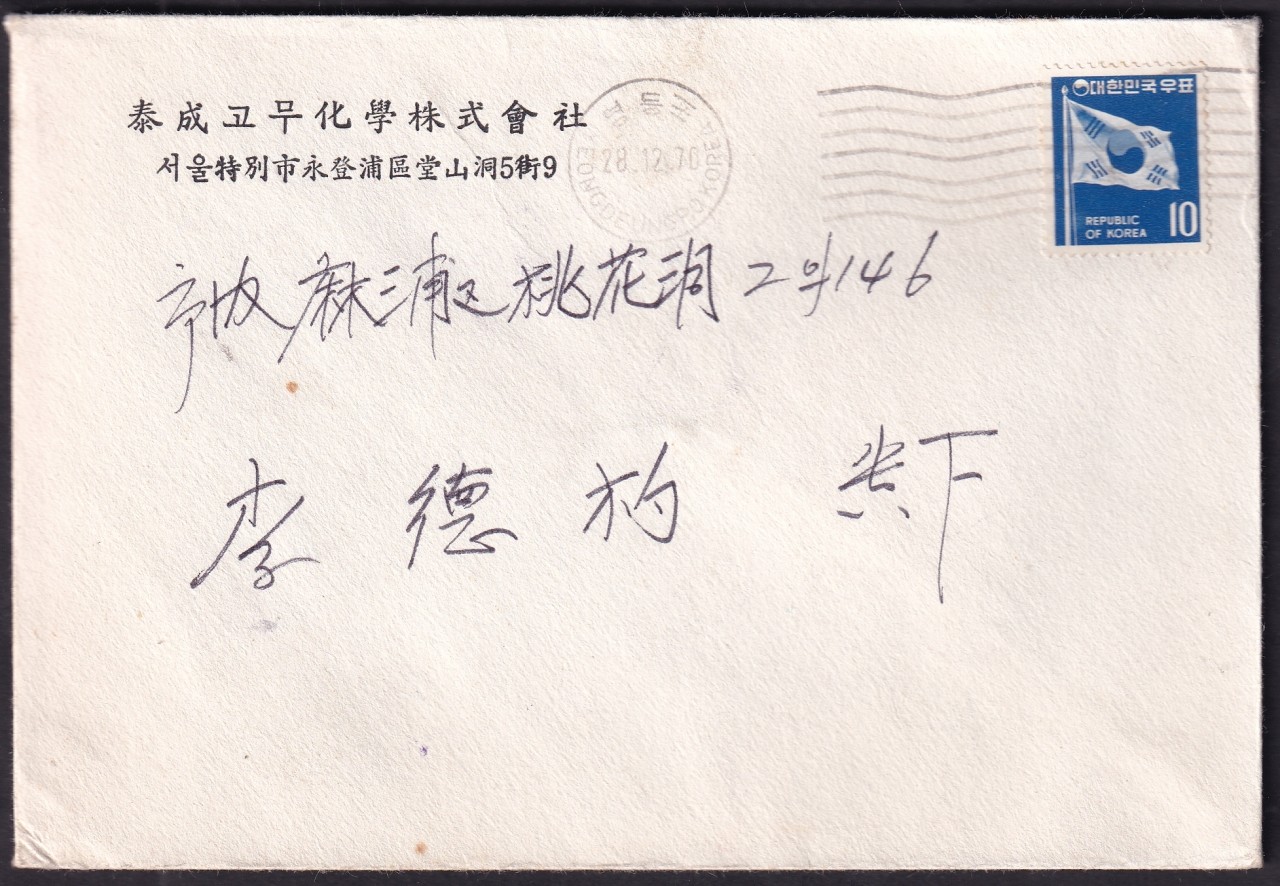 泰成고무化學株式會社
서울特別市永登浦區堂山洞5街9
영등포
28.12.70
YEONGDEUNGPO KOREA
대한민국우표
REPUBLIC
OF KOREA
10
市内 麻浦区 桃花洞 2의 146
李德杓 貴下